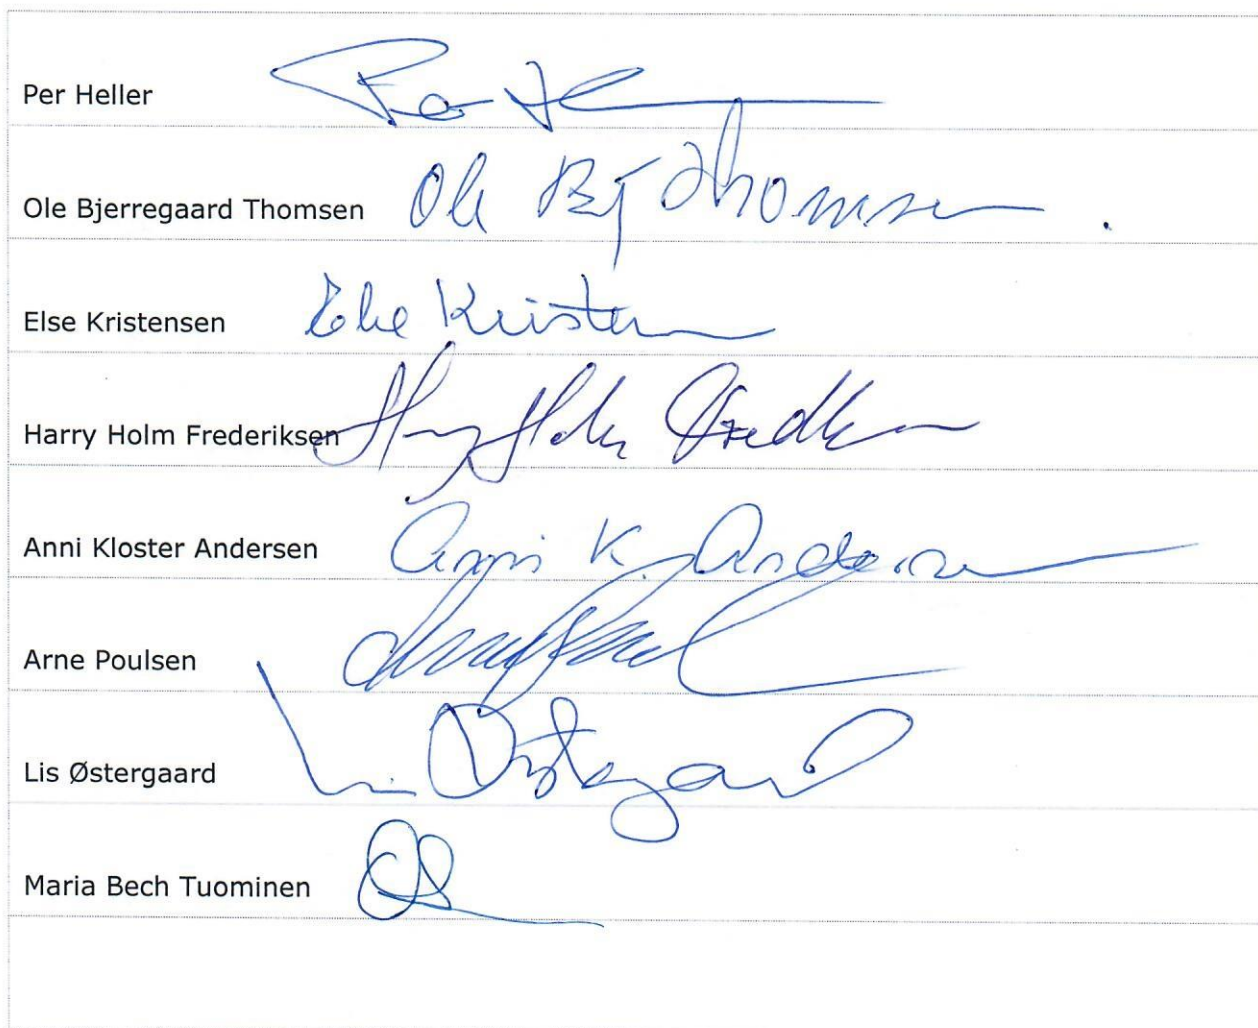 Per Heller
Ole Bjerregaard Thomsen Ole Bj Thomsen
Else Kristensen Else Kristen
Harry Holm Frederiksen
Anni Kloster Andersen Anni K. Andersen
Arne Poulsen
Lis Østergaard Lis Østergaard
Maria Bech Tuominen